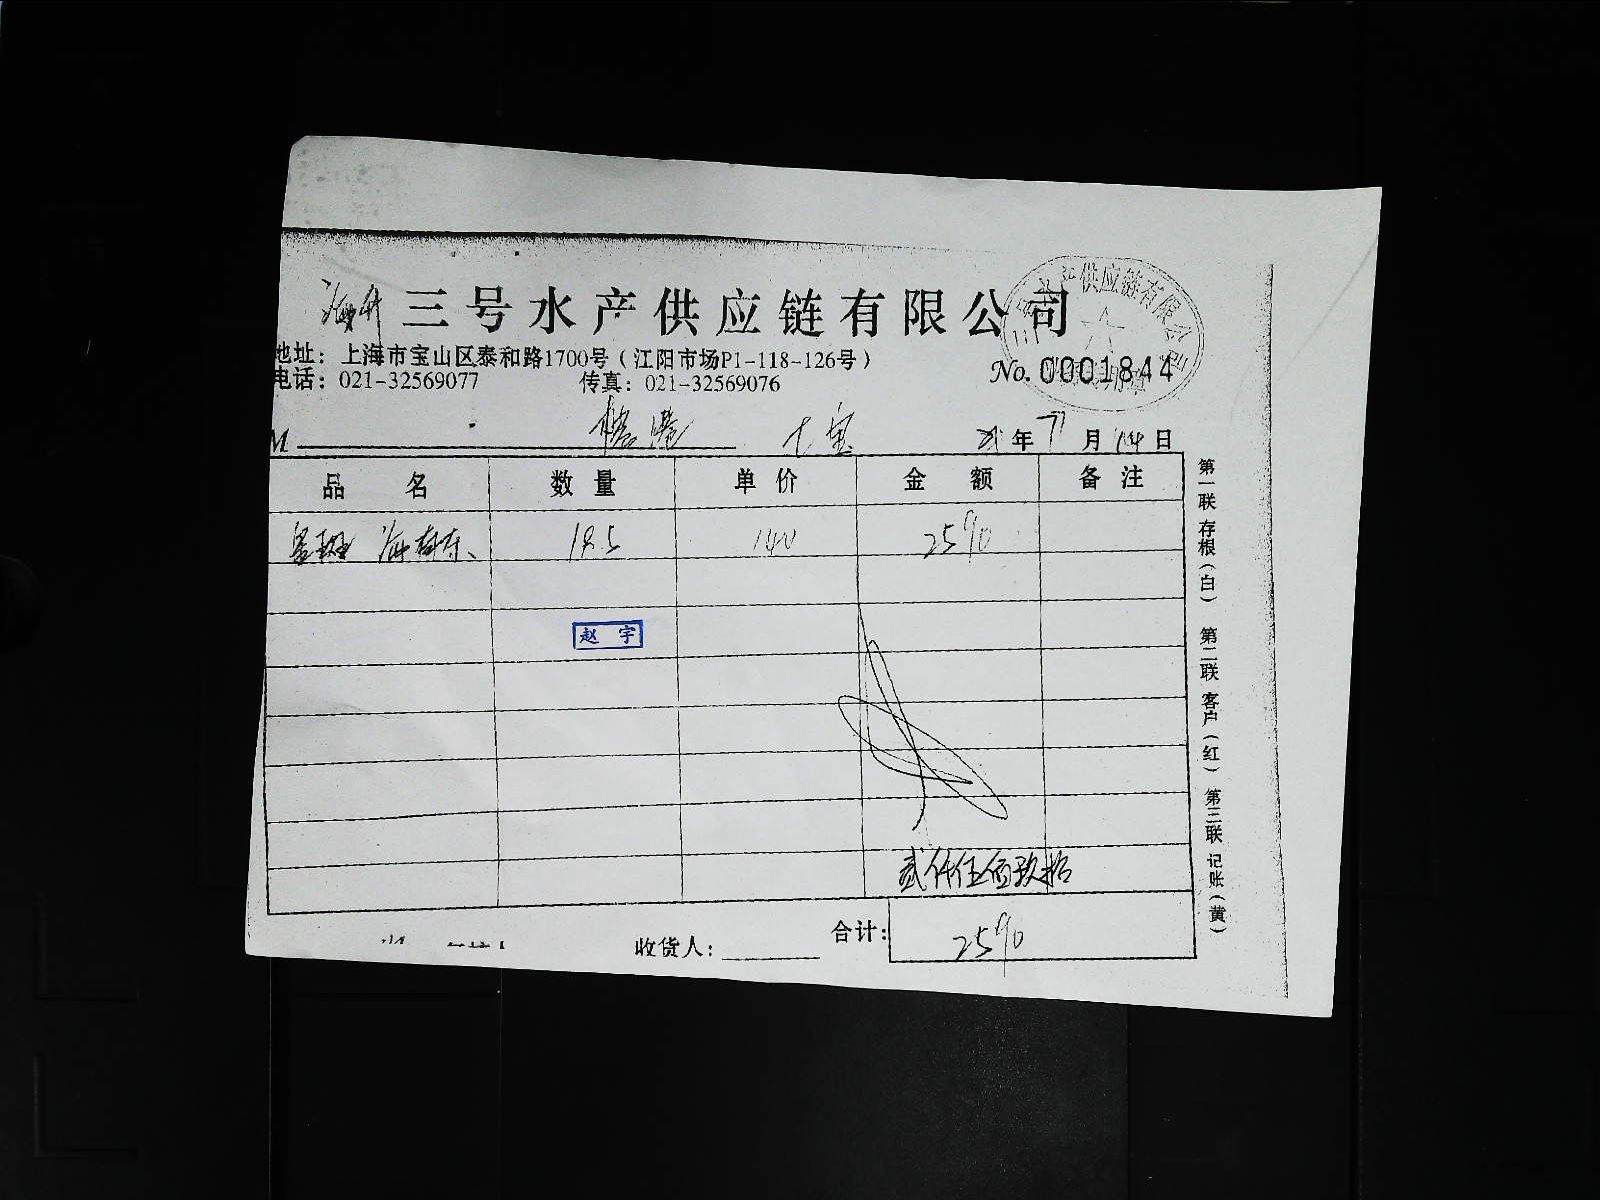 三号水产供应链有限公司
地址：上海市宝山区泰和路1700号（江阳市场P1-118-126号）
电话：021-32569077 传真：021-32569076
No.0001844
供应链有限公司
M
21年 月14日
品名 数量 单价 金额 备注
18.5 140 2590
赵宇
贰仟伍佰玖拾
收货人： 合计：2590
第一联 存根（白） 第二联 客户（红） 第三联 记账（黄）